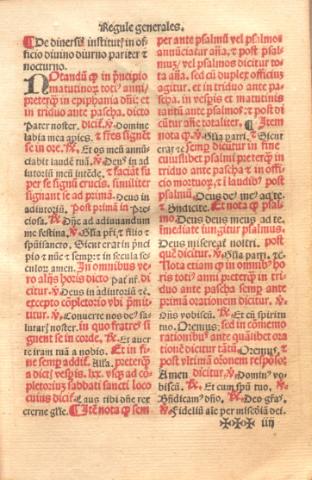 Regule generales.
¶ De diuersis institutis in of
ficio diuino diurno pariter ⁊
nocturno.
Notandū ꝙ in principio
matutinoꝝ toti⁹ anni,
preterꝙ in epiphania dñi: et
in triduo ante pascha. dicto
Pater noster. dicit̄. ℣. Domine
labia mea aperies. ⁊ fres signēt
se in ore. ℟. Et os meū annū
ciabit laudē tuā. ℣. Deus in ad
iutoriū meū intēde. ⁊ faciāt su
per se signū crucis. similiter
signant se ad prima. Deus in
adiutoriū. Post prima in Pre
ciosa. ℟. Dñe ad adiuuandum
me festina. ℣. Gl̄ia pr̄i. ⁊ filio ⁊
spūi sancto. Sicut erat in p̄nci
pio ⁊ nūc ⁊ semp̄: et in secula se
culoꝝ amen. In omnibus ve
ro alijs horis dicto Pat̄ nr̄. di
citur. ℣. Deus in adiutoriū tē.
excepto cōpletorio vbi p̄mit
titur. ℣. Conuerte nos de⁹ sa
lutar̄ noster. in quo fratres si
gnent se in corde. ℟. Et auer
te iram tuā a nobis. Et in fi
ne semp̄ addit̄. Alla. preterꝙ
a dict̄ vespis. lxx. vsqꝫ ad cō
pletoriū sabbati sancti loco
cuius dicit̄
eterne glīe. ¶ Itē nota ꝙ sem
per ante psalmū vel psalmos
annūciatur aña. ⁊ post psal
mū vel psalmos dicitur to
ta aña. sed cū duplex officiuȝ
agitur. et in triduo ante pa
scha. in vespis et matutinis
tantū aña. ante psalmos ⁊ post di
cūt̄ añe totaliter. ¶ Item
nota ꝙ. ℣. Gl̄ia patri. ℣. Sicut
erat tē. semp̄ dicitur in fine
cuiuslibet psalmi preterꝙ in
triduo ante pascha ⁊ in offi
cio mortuoꝝ. et ī laudib⁹ post
psalmū Deus de⁹ me⁹ ad te.
Et nota ꝙ psal
mo. Deus deus meus ad te.
immediate iungitur psalmus.
Deus misereat̄ nostri. ⁊ post
quē dicitur. ℣. Gl̄ia patri. tē.
Nota etiam ꝙ in omnib⁹ ho
ris toti⁹ anni preterꝙ in tri
duo ante pascha semp̄ ante
primā orationem dicitur. ℣.
Dñs vobiscū. ℟. Et cū spiritu
tuo. Oremus: sed in cōmemo
rationibus ante quālibet ora
tionē dicitur tātū Oremus. ⁊
post vltimā oronem respōso
Amen dicitur. ℣. Domin⁹ vo
biscū. ℟. Et cum spū tuo. ℣.
Bn̄dicam⁹ dño. ℟. Deo grās.
℣. Fideliū aīe per miscdiā dei.
✠✠✠ iiij